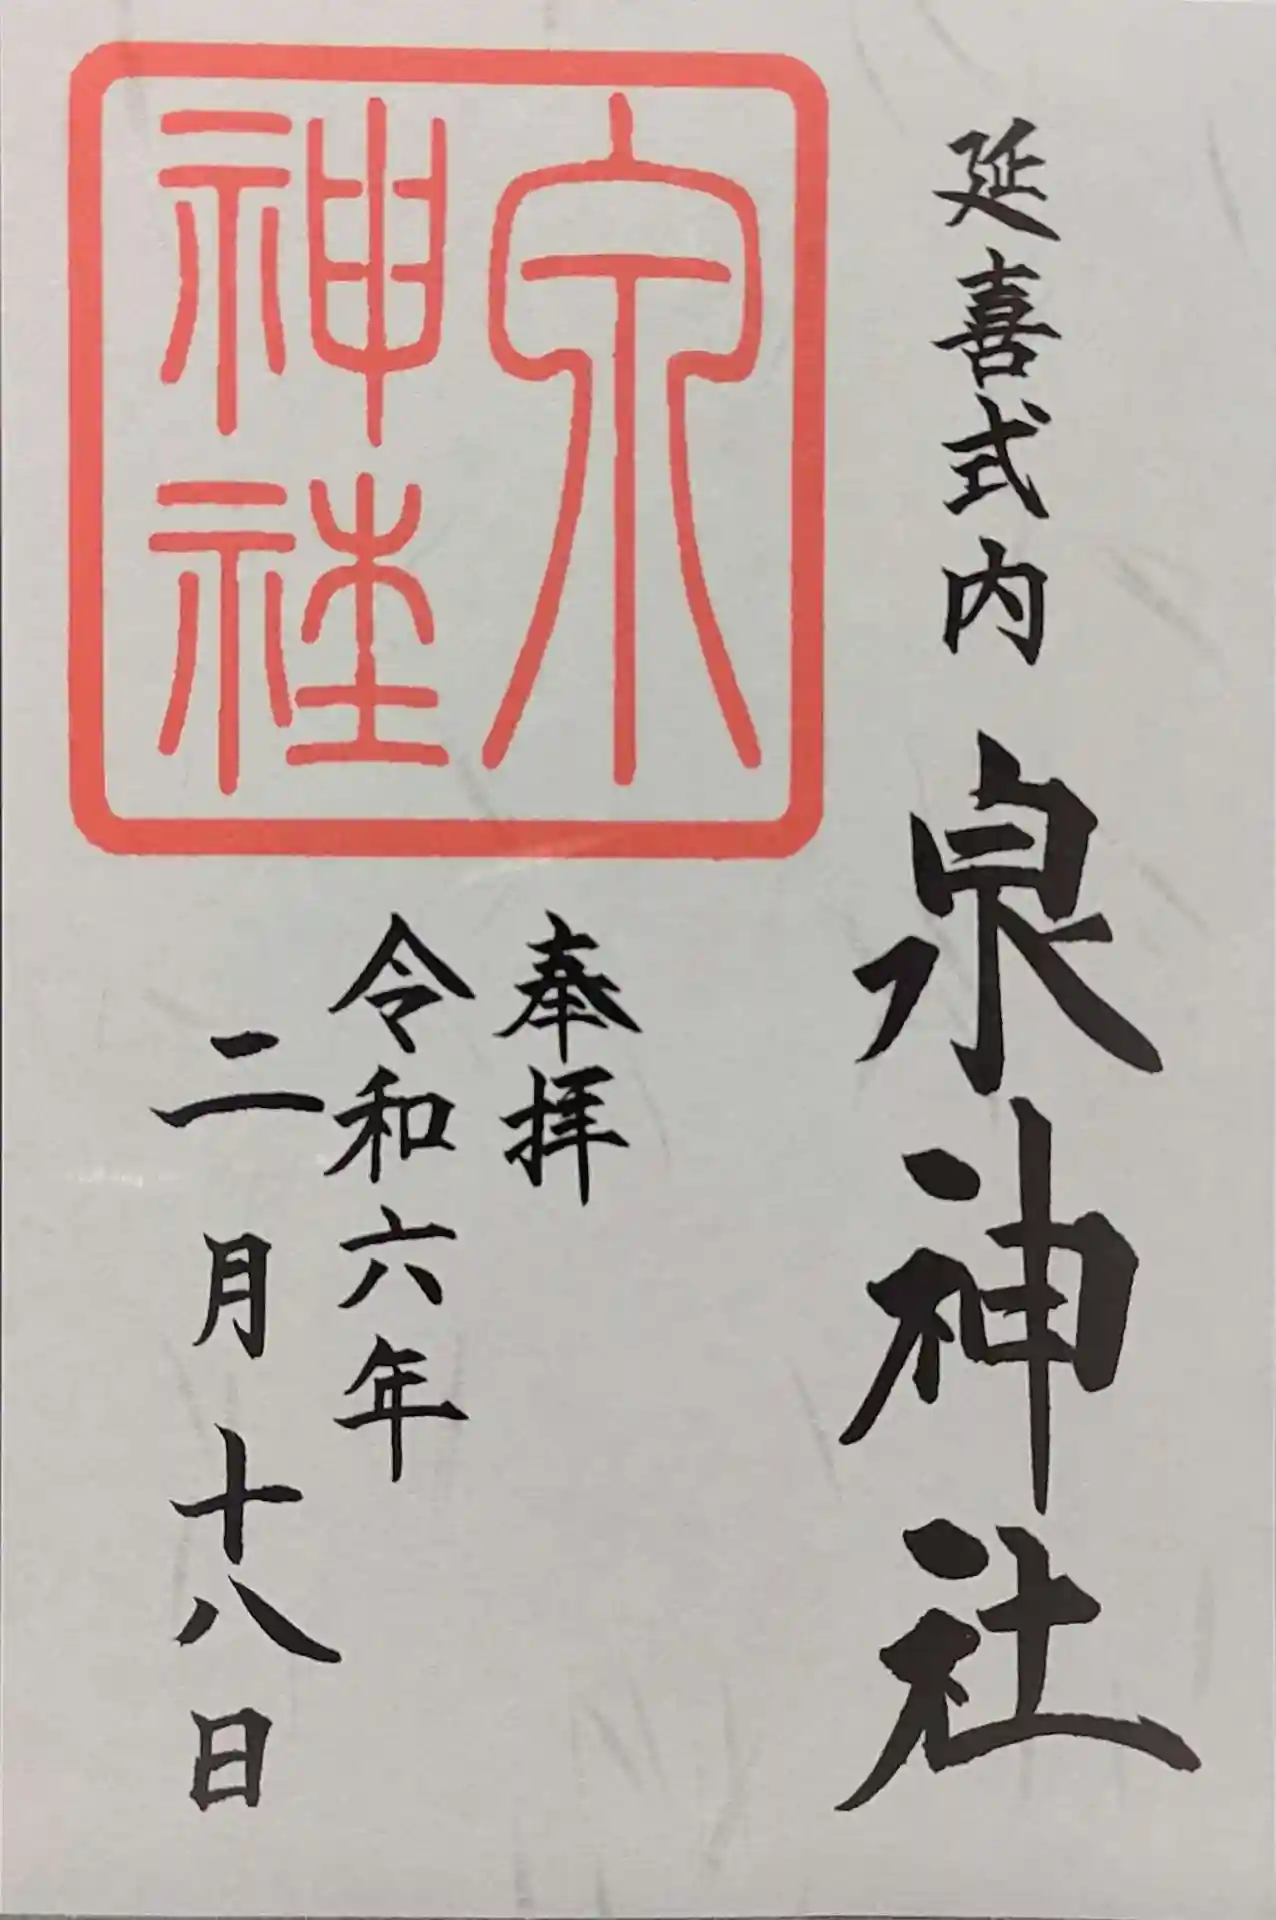 延喜式内 泉神社
泉
神社
奉拝
令和六年
二月十八日